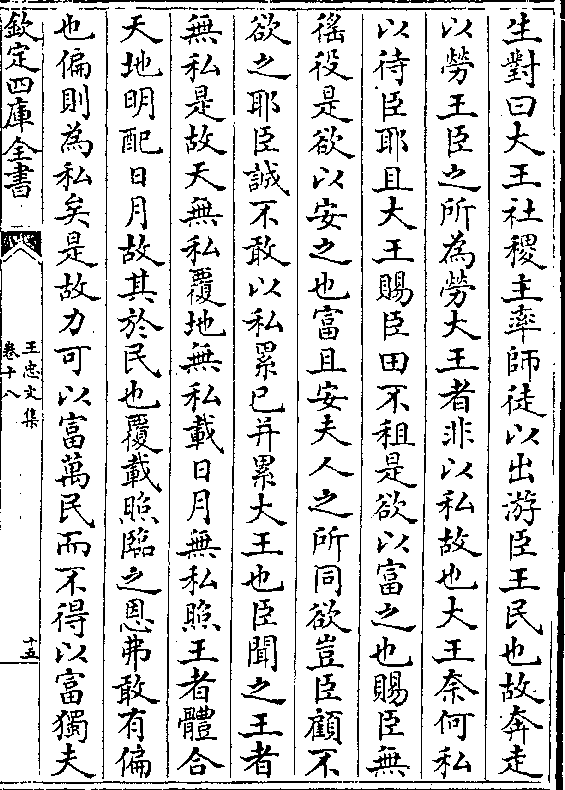 生對曰大王社稷主率師徒以出游臣王民也故奔走
以勞王臣之所為勞大王者非以私故也大王奈何私
以待臣耶且大王賜臣田不租是欲以富之也賜臣無
徭役是欲以安之也富且安夫人之所同欲豈臣顧不
欲之耶臣誠不敢以私累已并累大王也臣聞之王者
無私是故天無私覆地無私載日月無私照王者體合
天地明配日月故其於民也覆載照臨之恩弗敢有偏
也偏則為私矣是故力可以富萬民而不得以富獨夫
欽定四庫全書
王忠文集
卷十八
十五